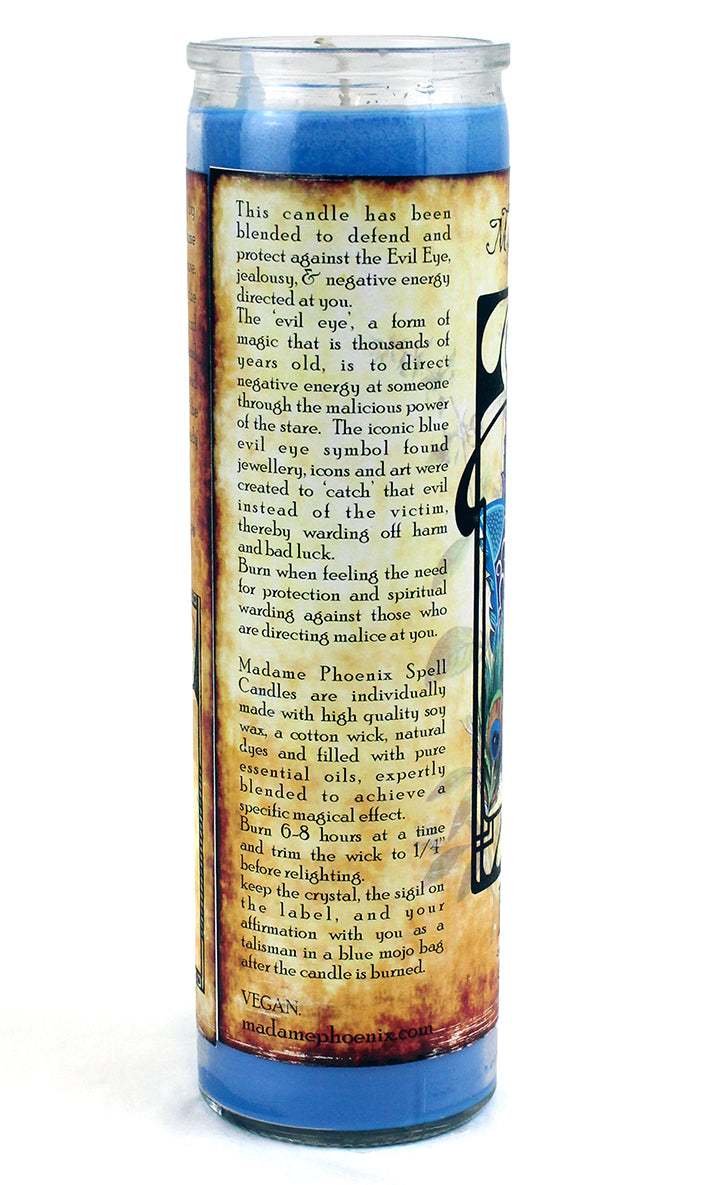 This candle has been
blended to defend and
protect against the Evil Eye,
jealousy, & negative energy
directed at you.
The 'evil eye', a form of
magic that is thousands of
years old, is to direct
negative energy at someone
through the malicious power
of the stare. The iconic blue
evil eye symbol found
jewellery, icons and art were
created to 'catch' that evil
instead of the victim,
thereby warding off harm
and bad luck.
Burn when feeling the need
for protection and spiritual
warding against those who
are directing malice at you.
Madame Phoenix Spell
Candles are individually
made with high quality soy
wax, a cotton wick, natural
dyes and filled with pure
essential oils, expertly
blended to achieve a
specific magical effect.
Burn 6-8 hours at a time
and trim the wick to 1/4"
before relighting.
keep the crystal, the sigil on
the label, and your
affirmation with you as a
talisman in a blue mojo bag
after the candle is burned.
VEGAN.
madamephoenix.com